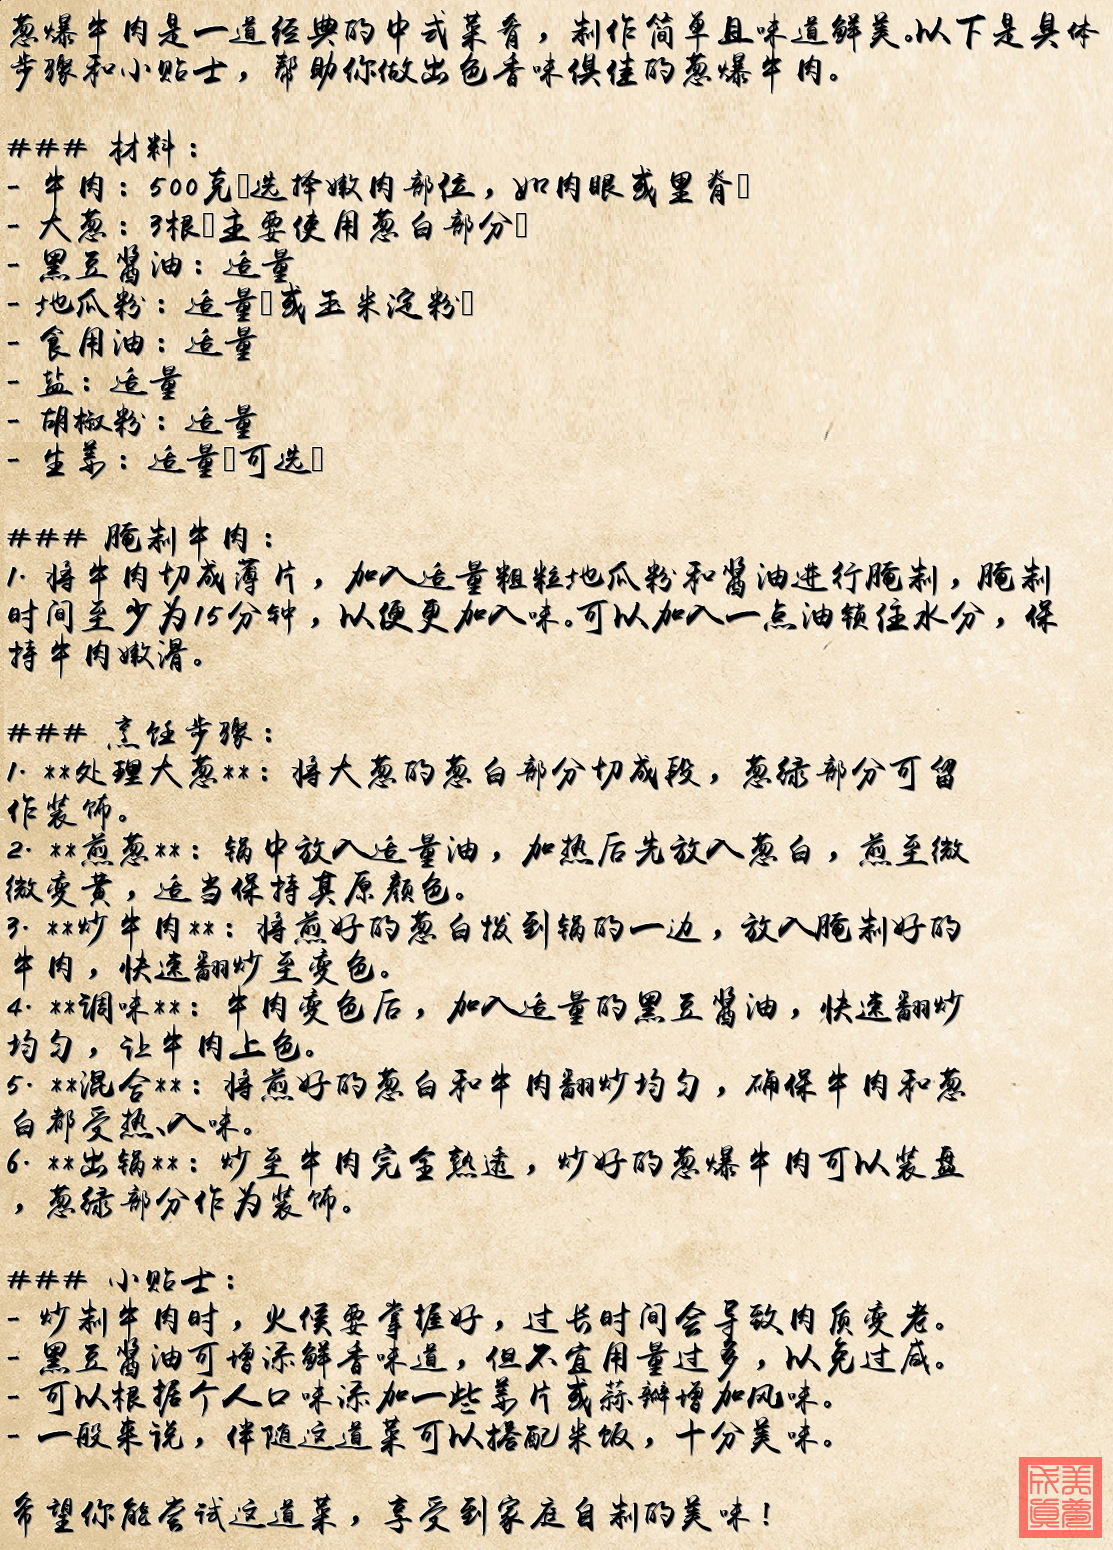 葱爆牛肉是一道经典的中式菜肴，制作简单且味道鲜美。以下是具体
步骤和小贴士，帮助你做出色香味俱佳的葱爆牛肉。
### 材料：
- 牛肉：500克选择嫩肉部位，如肉眼或里脊
- 大葱：3根主要使用葱白部分
- 黑豆酱油：适量
- 地瓜粉：适量或玉米淀粉
- 食用油：适量
- 盐：适量
- 胡椒粉：适量
- 生姜：适量可选
### 腌制牛肉：
1. 将牛肉切成薄片，加入适量粗粒地瓜粉和酱油进行腌制，腌制
时间至少为15分钟，以便更加入味。可以加入一点油锁住水分，保
持牛肉嫩滑。
### 烹饪步骤：
1. **处理大葱**：将大葱的葱白部分切成段，葱绿部分可留
作装饰。
2. **煎葱**：锅中放入适量油，加热后先放入葱白，煎至微
微变黄，适当保持其原颜色。
3. **炒牛肉**：将煎好的葱白拨到锅的一边，放入腌制好的
牛肉，快速翻炒至变色。
4. **调味**：牛肉变色后，加入适量的黑豆酱油，快速翻炒
均匀，让牛肉上色。
5. **混合**：将煎好的葱白和牛肉翻炒均匀，确保牛肉和葱
白都受热、入味。
6. **出锅**：炒至牛肉完全熟透，炒好的葱爆牛肉可以装盘
，葱绿部分作为装饰。
### 小贴士：
- 炒制牛肉时，火候要掌握好，过长时间会导致肉质变老。
- 黑豆酱油可增添鲜香味道，但不宜用量过多，以免过咸。
- 可以根据个人口味添加一些姜片或蒜瓣增加风味。
- 一般来说，伴随这道菜可以搭配米饭，十分美味。
希望你能尝试这道菜，享受到家庭自制的美味！
美夢成真